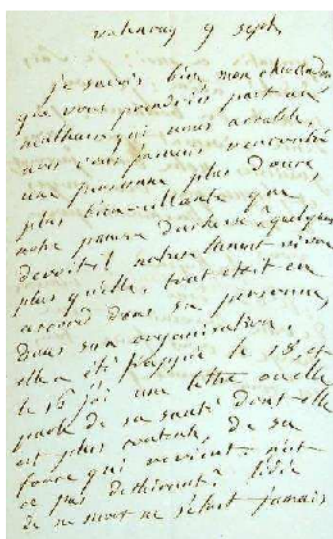 valençay 9 sept
je savois bien mon cher
que vous prendriés part au
malheur qui nous accable,
avés vous jamais rencontré
une personne plus douce,
plus bienveillante que
notre pauvre duchesse, quelqu'un
devoit il naturellement vivre
plus qu'elle, tout etoit en
accord dans sa personne,
dans son organisation.
elle a été frappée le 18, et
le 16 j'ai une lettre ou elle
parle de sa santé dont elle
est plus contente, de sa
force qui revient. n'est
ce pas dechirant? l'idée
de sa mort ne s'etoit jamais